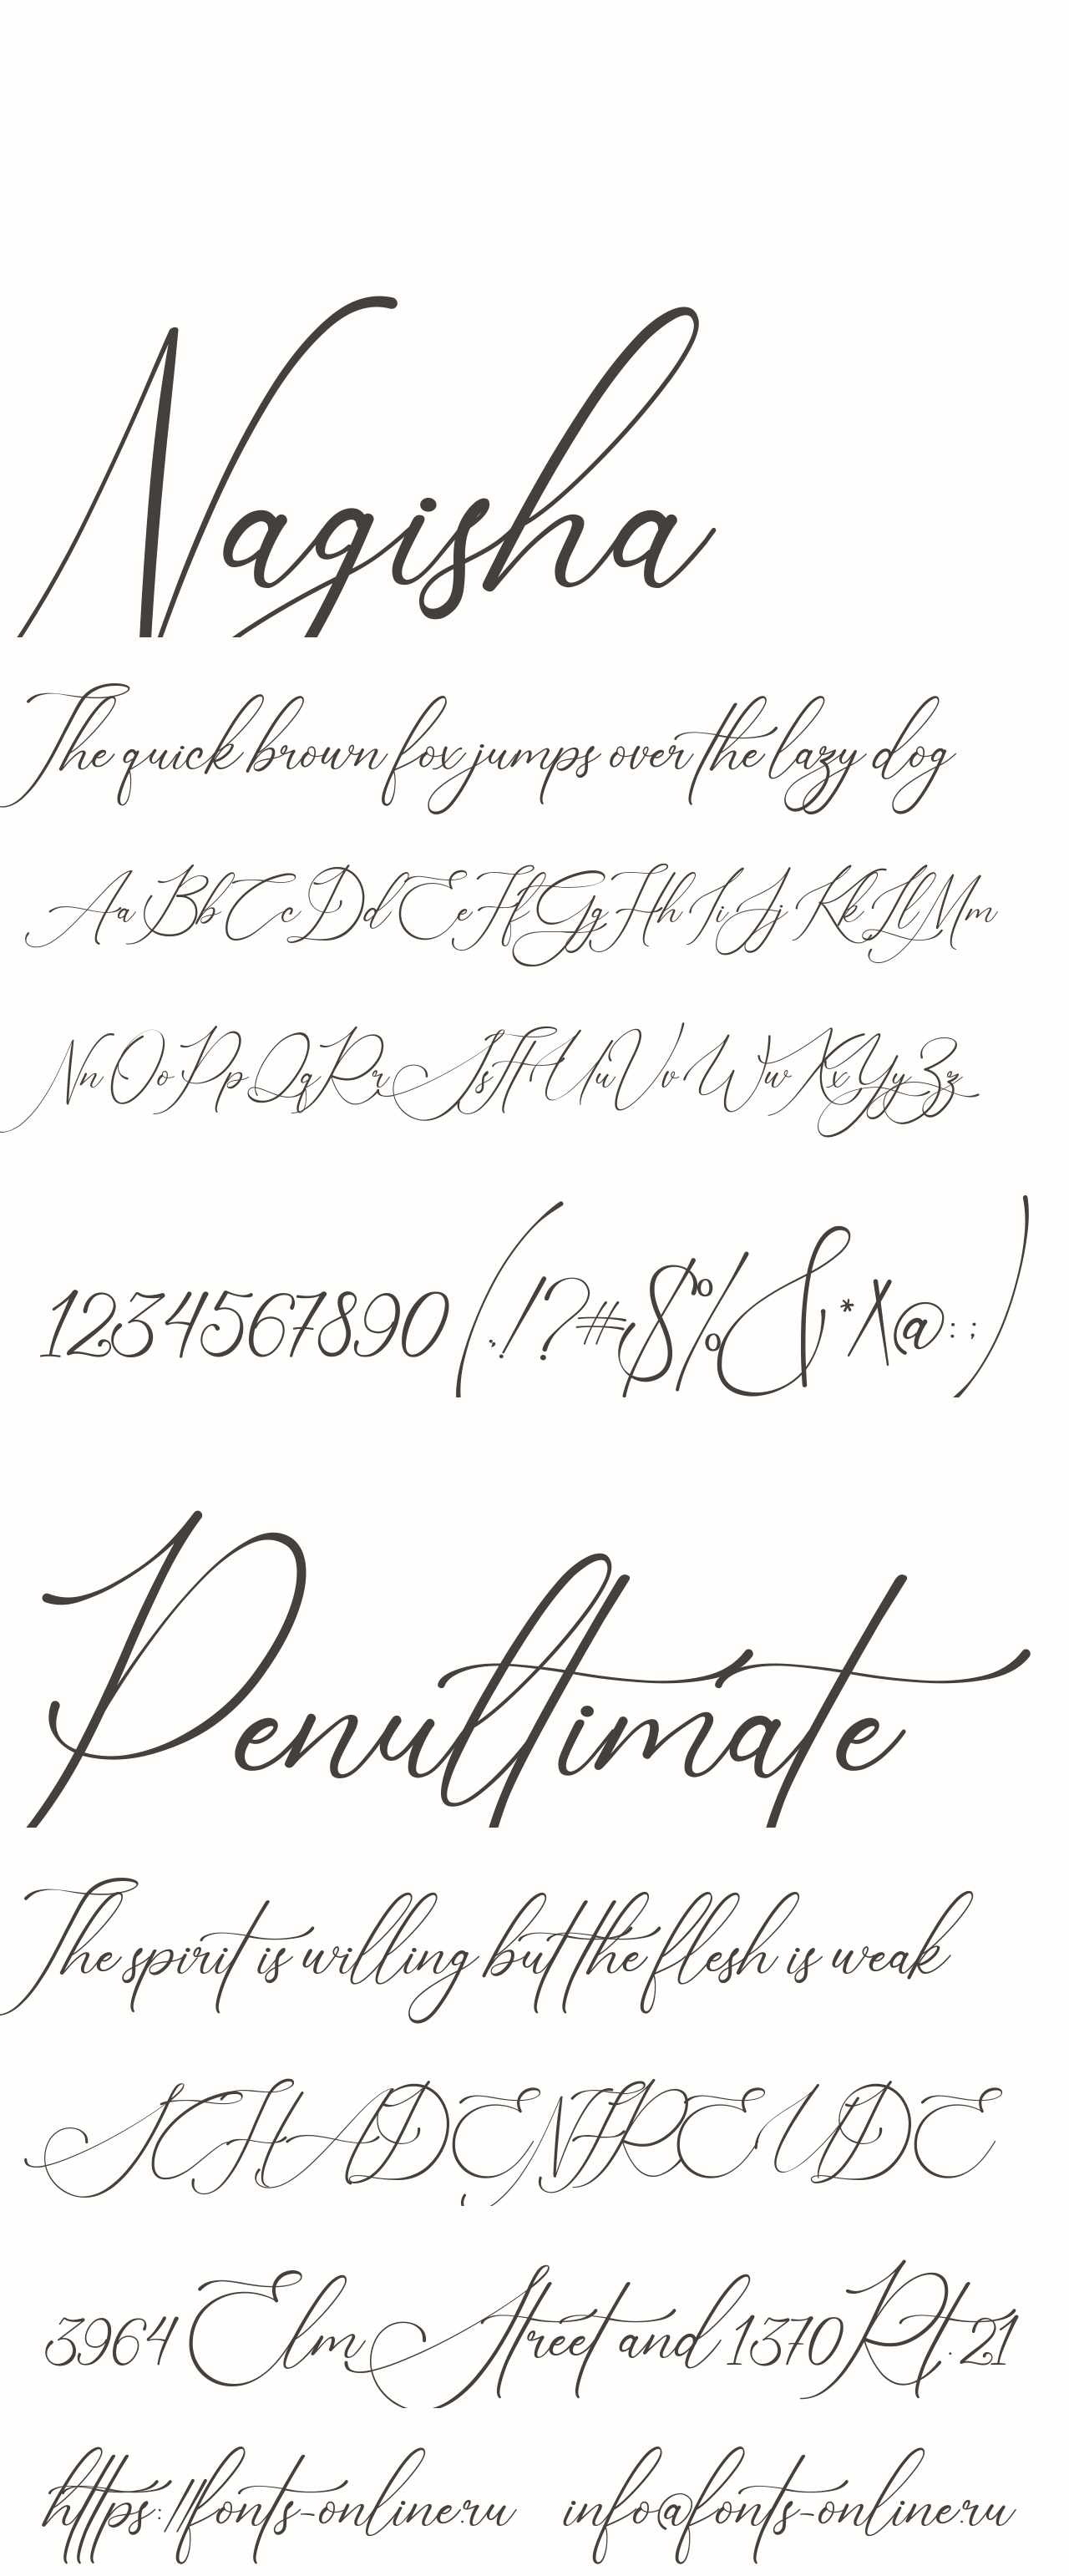 Nagisha
The quick brown fox jumps over the lazy dog
Aa Bb Cc Dd Ee Ff Gg Hh Ii Jj Kk Ll Mm
Nn Oo Pp Qq Rr Ss Tt Uu Vv Ww Xx Yy Zz
1234567890 (.,!?#$%&*X@:;)
Penultimate
The spirit is willing but the flesh is weak
SCHADENFREUDE
3964 Elm Street and 1370 Rt. 21
https://fonts-online.ru info@fonts-online.ru